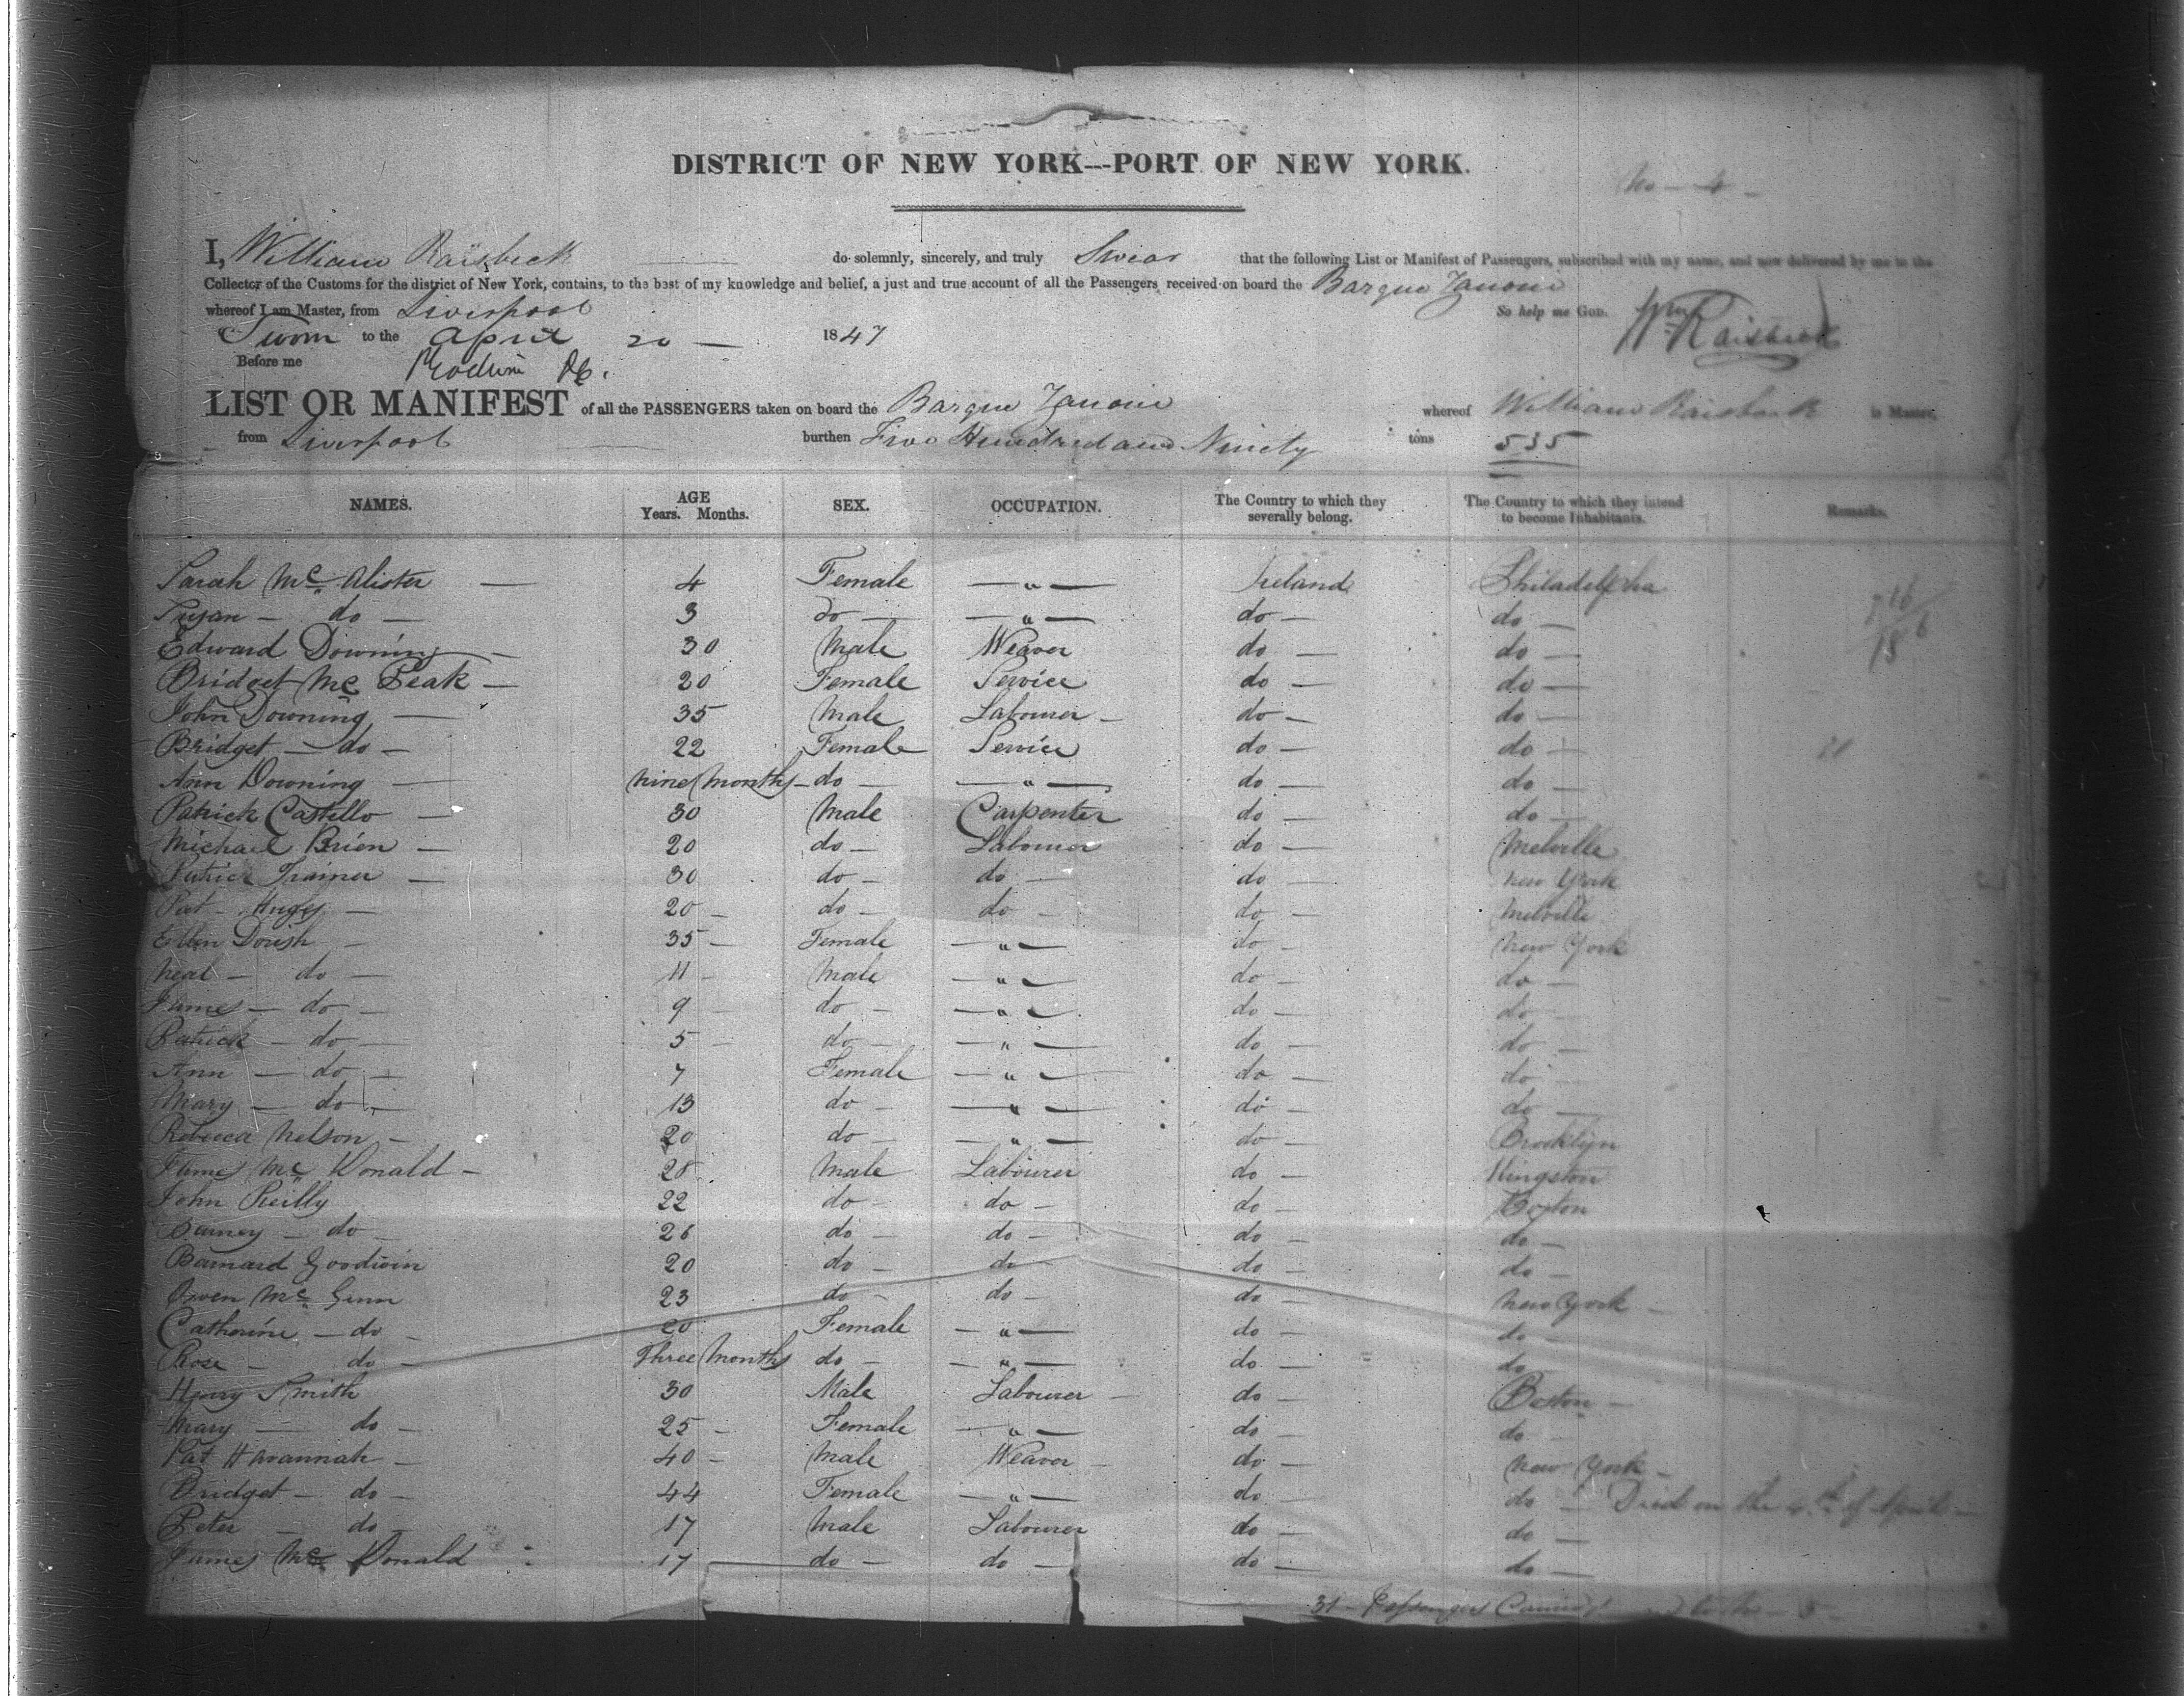 DISTRICT OF NEW YORK---PORT OF NEW YORK.
No - 4 -
I, William Raisbeck do solemnly, sincerely, and truly Swear that the following List or Manifest of Passengers, subscribed with my name, and now delivered by me to the
Collector of the Customs for the district of New York, contains, to the best of my knowledge and belief, a just and true account of all the Passengers received on board the Barque Zanoni
whereof I am Master, from Liverpool So help me GOD. Wm Raisbeck
Sworn to the April 20 - 1847
Before me
LIST OR MANIFEST of all the PASSENGERS taken on board the Barque Zanoni whereof William Raisbeck is Master,
from Liverpool burthen Five Hundred and Ninety tons 535
NAMES. AGE Years. Months. SEX. OCCUPATION. The Country to which they severally belong. The Country to which they intend to become Inhabitants. Remarks.
Sarah Mc Alister — 4 Female — " — Ireland Philadelphia
Susan — do — 3 do — — " — do — do —
Edward Downing — 30 Male Weaver do — do —
Bridget Mc Peak — 20 Female Service do — do —
John Downing — 35 Male Labourer — do — do —
Bridget — do — 22 Female Service do — do —
Ann Downing — Nine Months — do — — " — do — do —
Patrick Castello — 30 Male Carpenter do — do —
Michael Brien — 20 do — Labourer do — Melville
Patrick Trainer — 30 do — do — do — New York
Pat — Huges — 20 — do — do — do — Melville
Ellen Dorish — 35 — Female — " — do — New York
Neal — do — 11 — Male — " — do — do —
James — do — 9 — do — — " — do — do —
Patrick — do — 5 — do — — " — do — do —
Ann — do — 7 Female — " — do — do —
Mary — do — 13 do — — " — do — do —
Rebecca Nelson — 20 do — — " — do — Brooklyn
James Mc Donald — 28 Male Labourer do — Kingston
John Reilly 22 do — do — do — Boston
Barney — do — 26 do — do — do — do —
Barnard Goodwin 20 do — do — do — do —
Owen Mc Ginn 23 do — do — do — New York —
Catherine — do — 20 Female — " — do — do —
Rose — do — Three Months do — — " — do — do —
Henry Smith 30 Male Labourer — do — Boston —
Mary — do — 25 — Female — " — do — do —
Pat Havannah — 40 — Male Weaver — do — New York —
Bridget — do — 44 Female — " — do — do — Died on the of April —
Peter — do — 17 Male Labourer do — do —
James Mc Donald 17 do — do — do — do —
31 — Passengers Carried to No 5 —